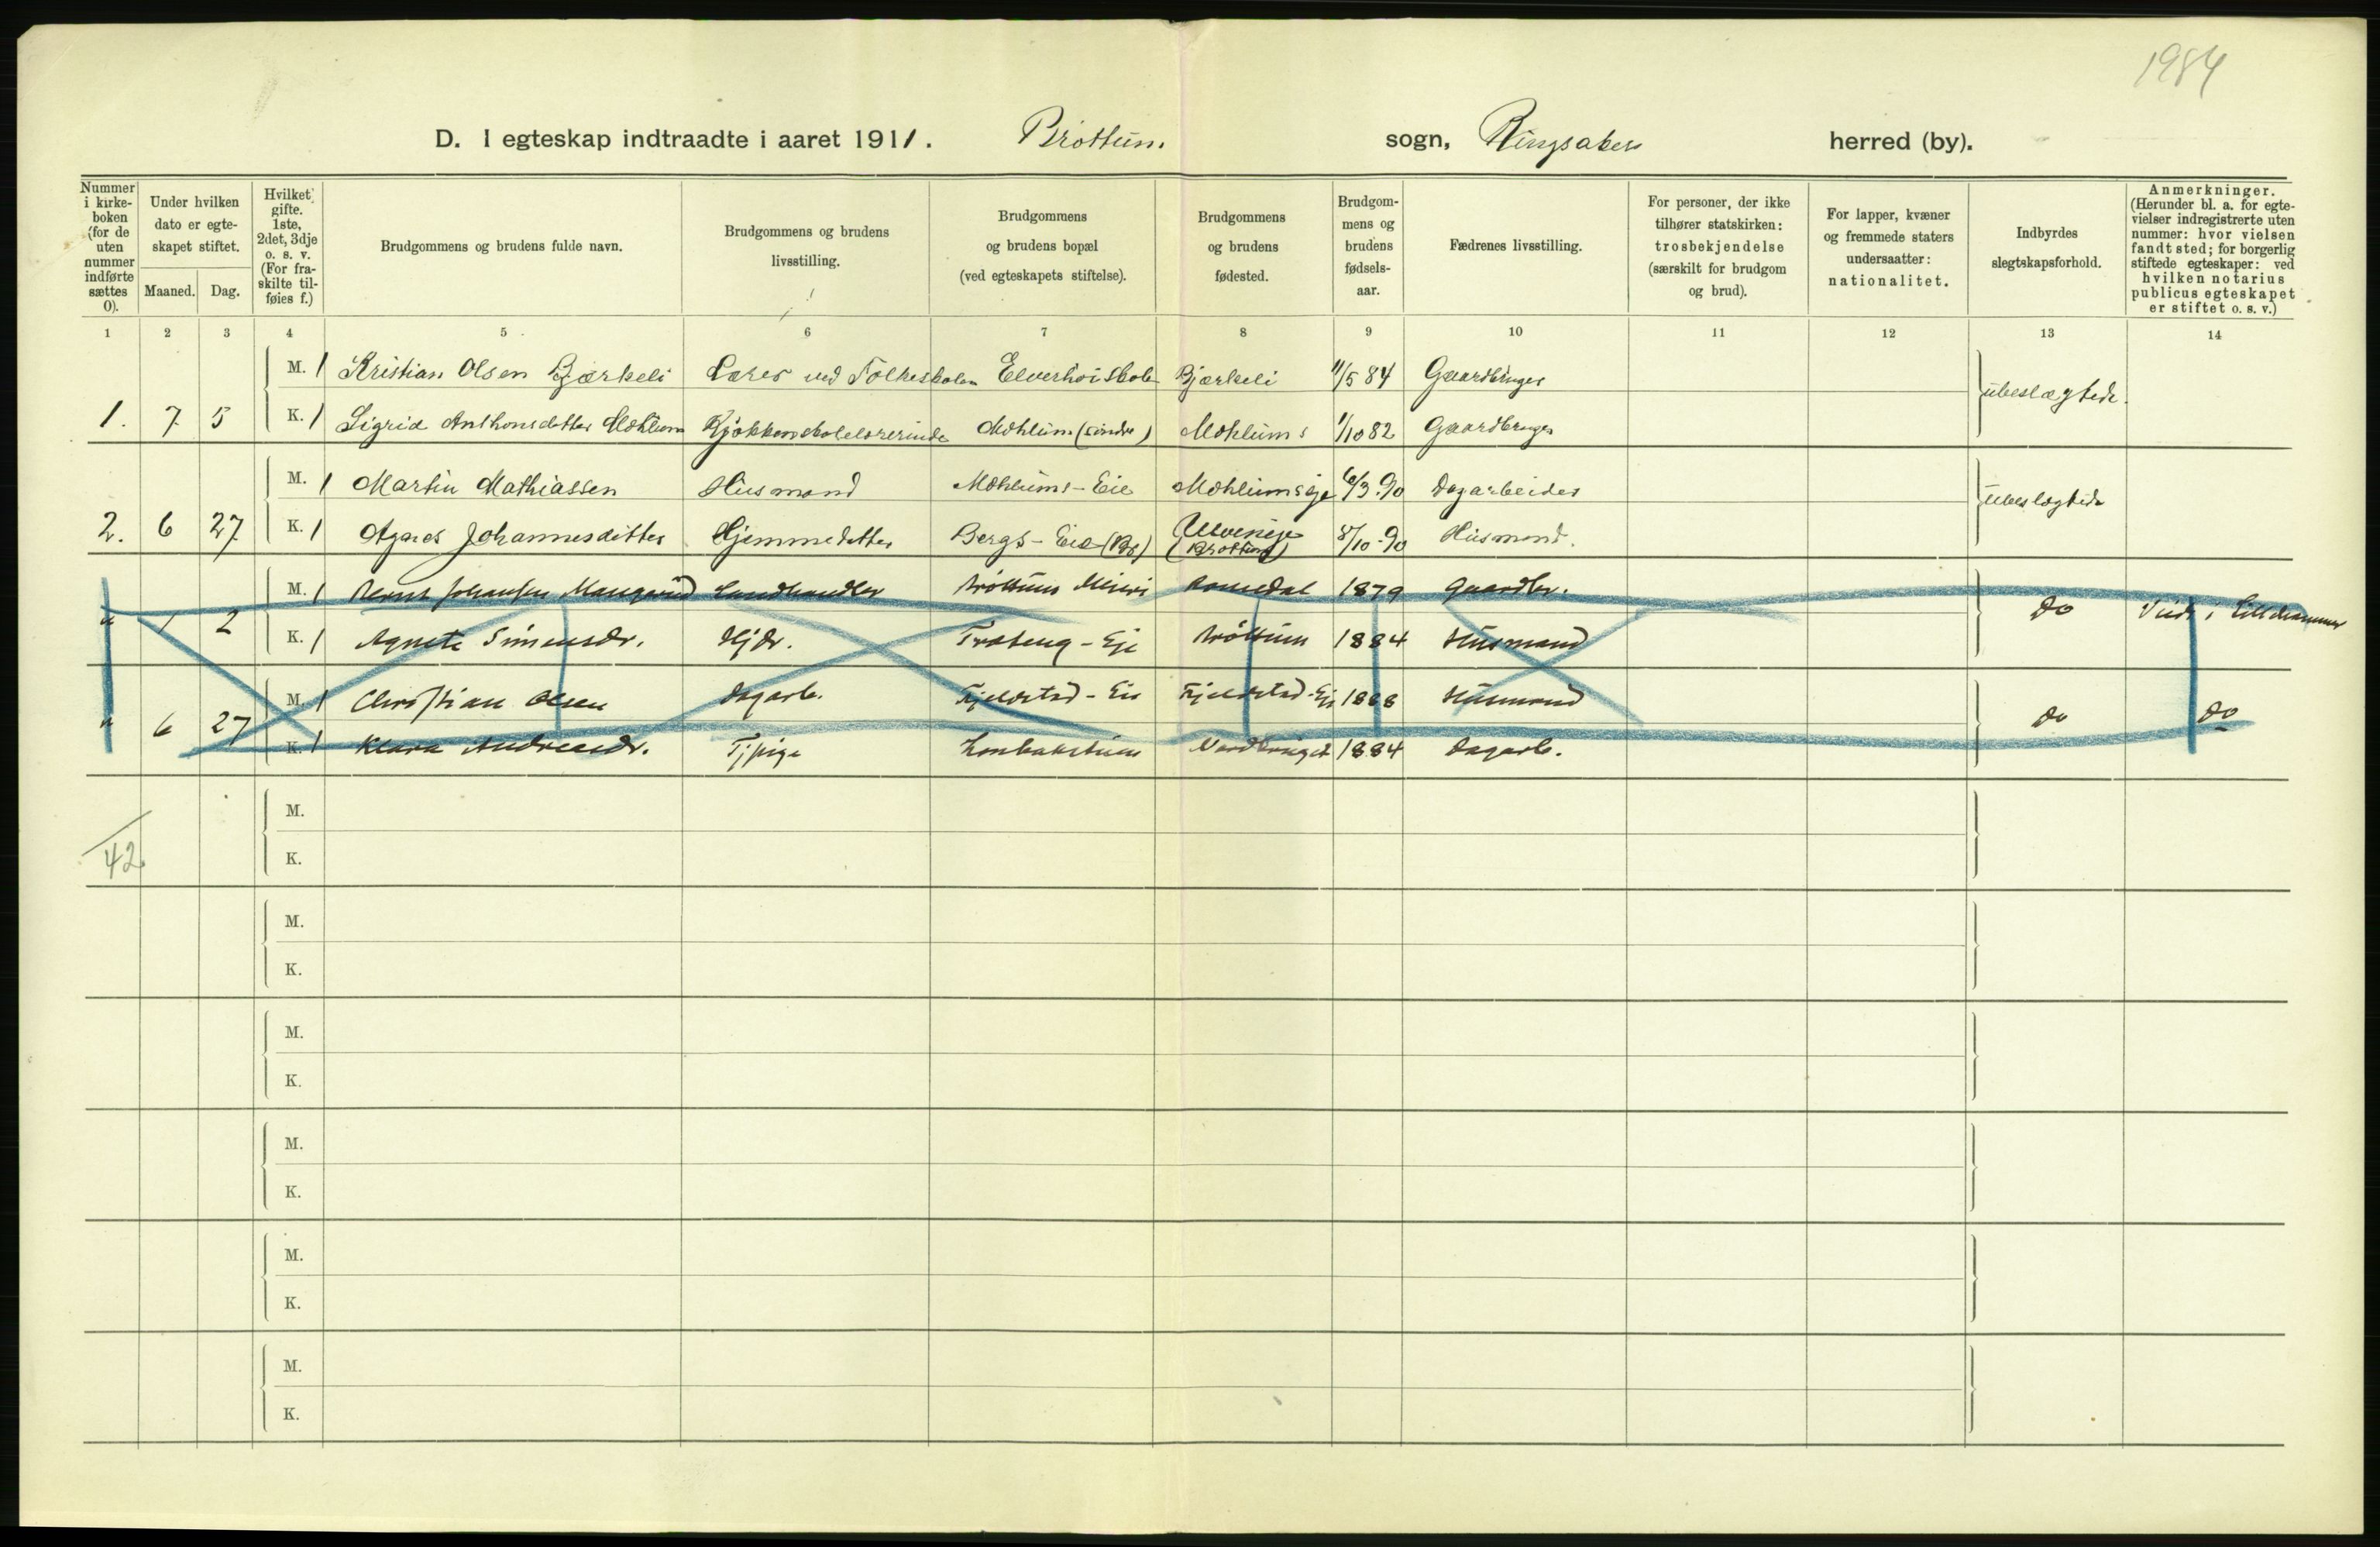 1984
D. I egteskap indtraadte i aaret 1911. Brøttum sogn, Ringsaker herred (by).
Nummer i kirke-boken (for de uten nummer indførte sættes 0).
Under hvilken dato er egte-skapet stiftet.
Maaned. Dag.
Hvilket gifte. 1ste, 2det, 3dje o. s. v. (For fra-skilte til-føies f.)
Brudgommens og brudens fulde navn.
Brudgommens og brudens livsstilling.
Brudgommens og brudens bopæl (ved egteskapets stiftelse).
Brudgommens og brudens fødested.
Brudgom-mens og brudens fødsels-aar.
Fædrenes livsstilling.
For personer, der ikke tilhører statskirken: trosbekjendelse (særskilt for brudgom og brud).
For lapper, kvæner og fremmede staters undersaatter: nationalitet.
Indbyrdes slegtskapsforhold.
Anmerkninger. (Herunder bl. a. for egte-vielser indregistrerte uten nummer: hvor vielsen fandt sted; for borgerlig stiftede egteskaper: ved hvilken notarius publicus egteskapet er stiftet o. s. v.)
1 2 3 4 5 6 7 8 9 10 11 12 13 14
M. 1 Kristian Olsen Bjærkeli Lærer ved Folkeskolen Elverhøi skole Bjærkeli 11/5 84 Gaardbruger ubeslægtede.
1. 7 5 K. 1 Sigrid Anthonsdatter Mohlum Kjøkkenskolelærerinde Mohlum (søndre) Mohlums 1/10 82 Gaardbruger
M. 1 Martin Mathiassen Husmand Mohlums-Eie Mohlumseje 6/3.90 Dagarbeider ubeslægtede
2. 6 27 K. 1 Agnes Johannesdatter Hjemmedatter Bergs-Eie (Br) Ulvseneje (Brøttum) 8/10.90 Husmand.
M. 1 Johansen Landhandler Brøttums Romedal 1879 Gaardbr. do Viede i Lillehammer
" 1 2 K. 1 Agnete Simensdr. Hjdr. -Eje Brøttum 1884 Husmand
M. 1 Christian Olsen Dagarb. Fjeldstad-Eie Fjeldstad-Ei 1888 Husmand do do
" 6 27 K. 1 Klara Andreasdr. Tjpige 1884 Dagarb.
M.
42 K.
M.
K.
M.
K.
M.
K.
M.
K.
M.
K.